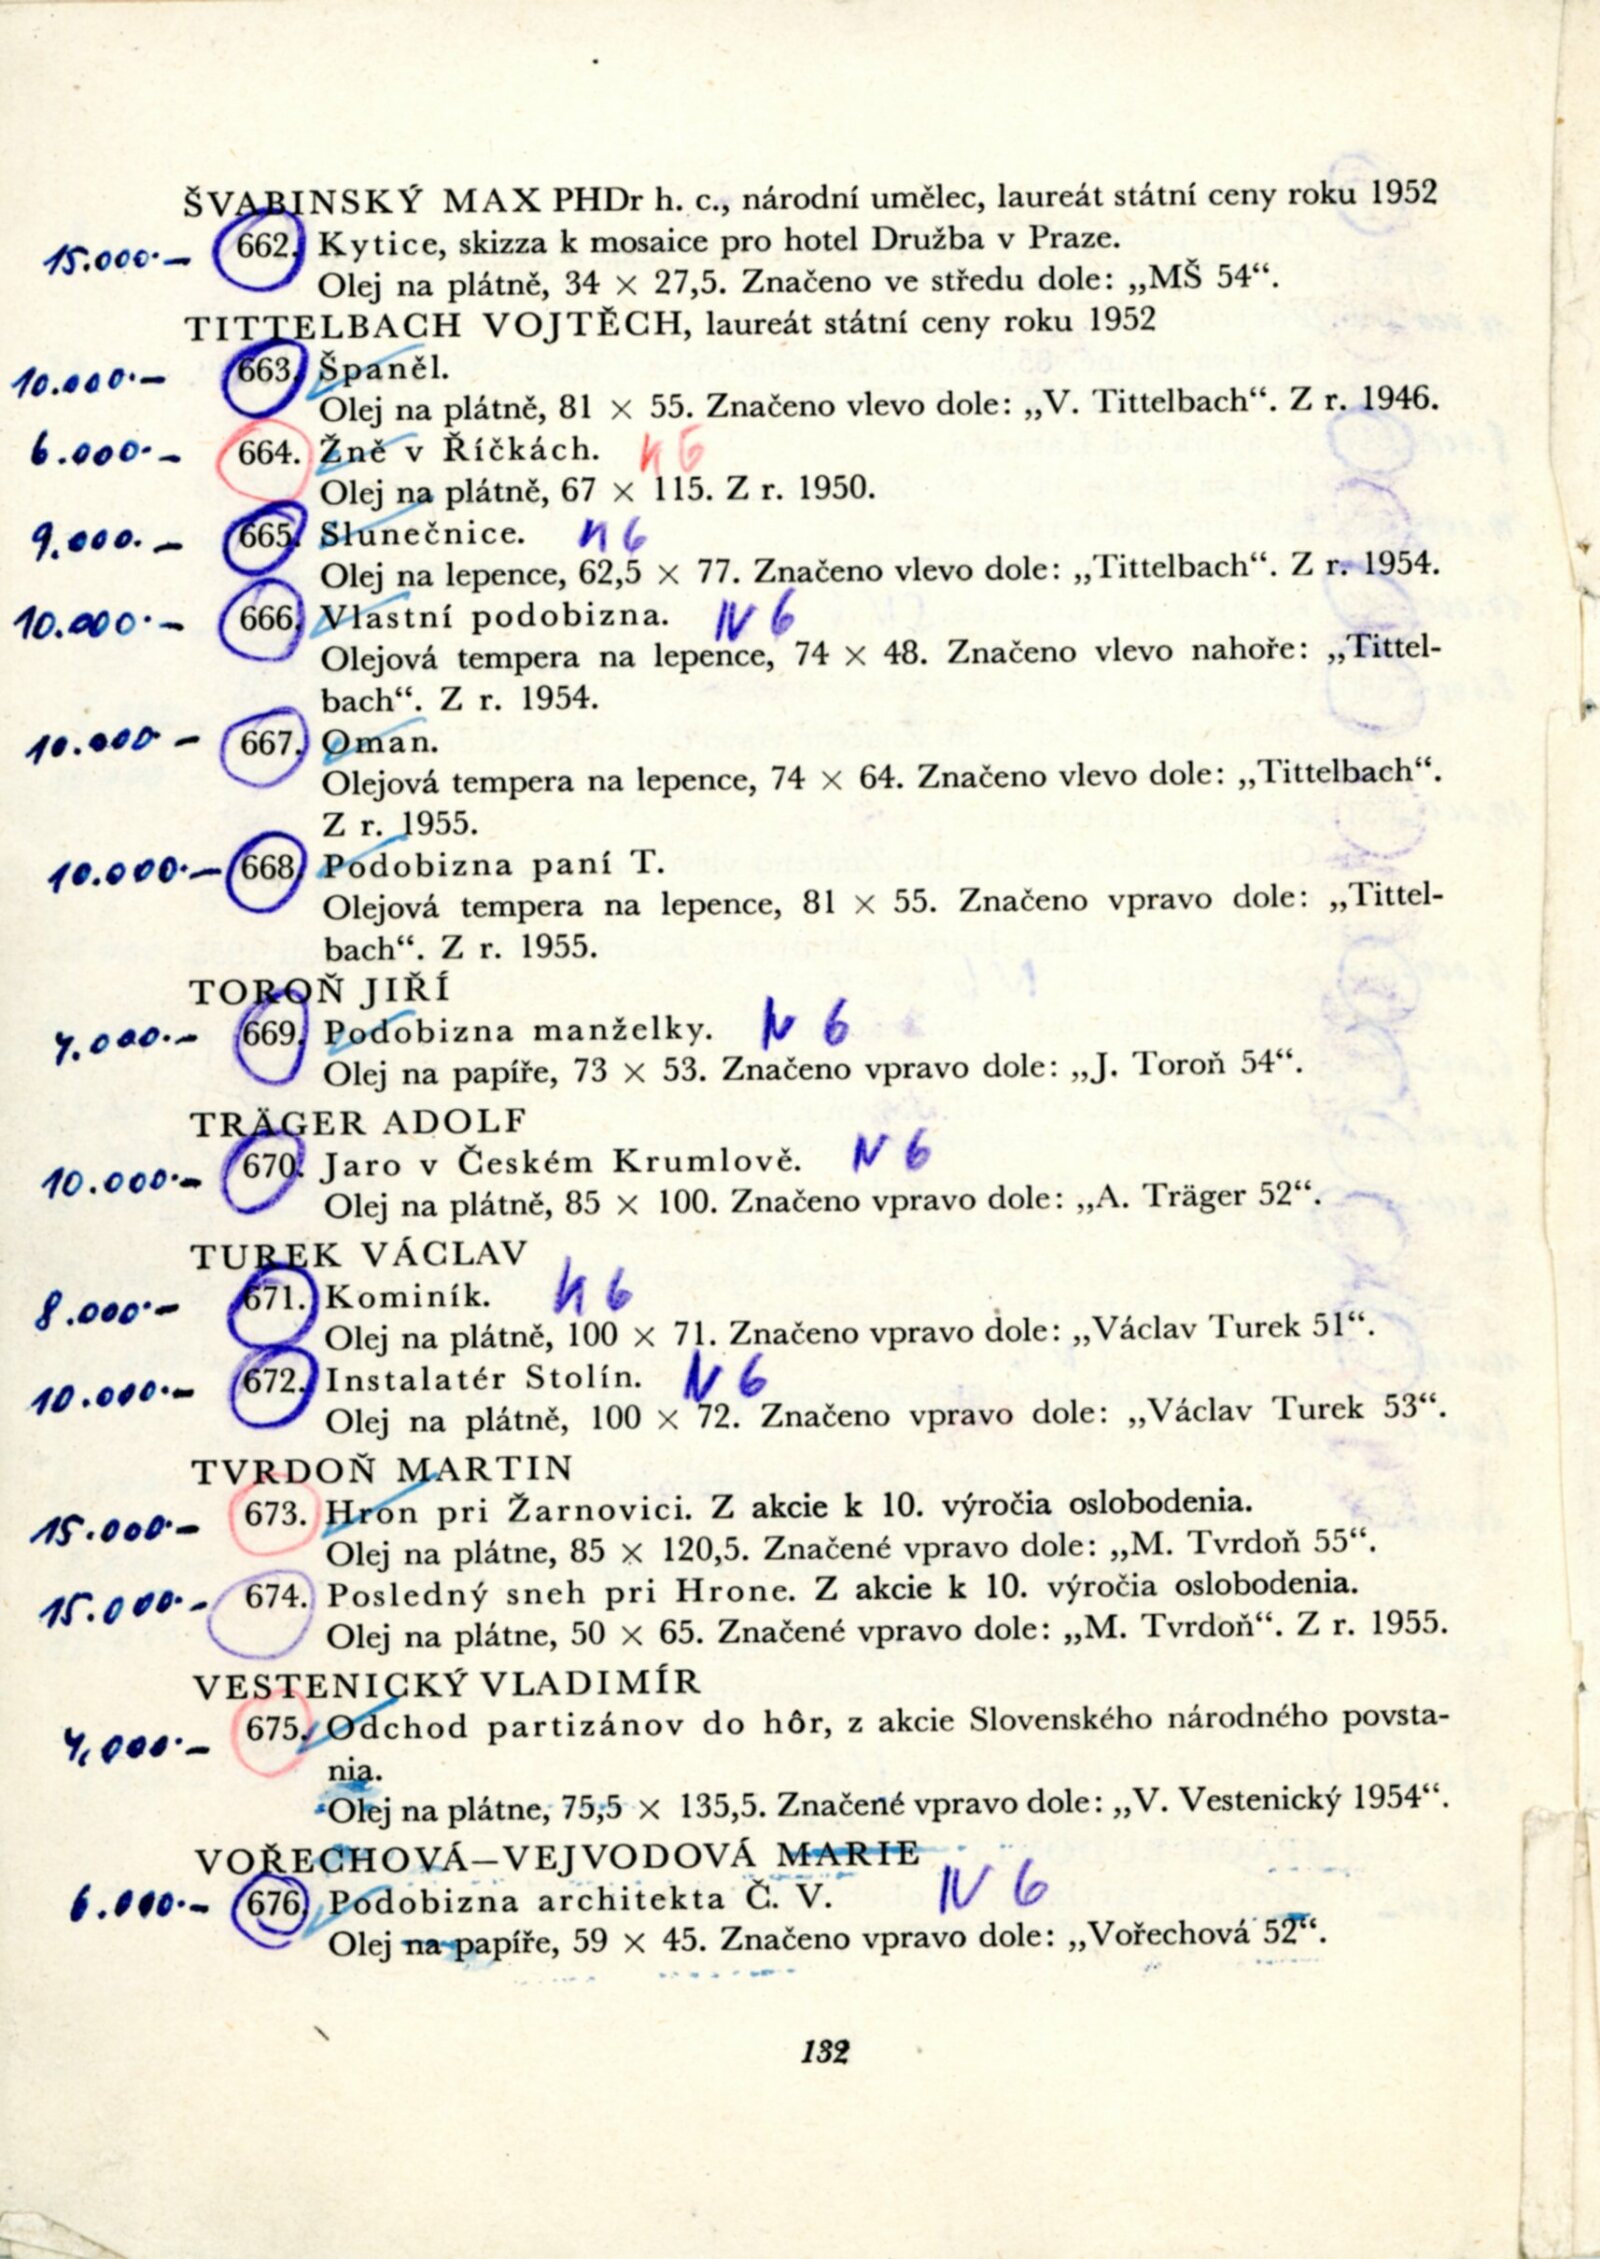 ŠVABINSKÝ MAX PHDr h. c., národní umělec, laureát státní ceny roku 1952
15.000.– 662. Kytice, skizza k mosaice pro hotel Družba v Praze.
Olej na plátně, 34 × 27,5. Značeno ve středu dole: „MŠ 54“.
TITTELBACH VOJTĚCH, laureát státní ceny roku 1952
10.000.– 663. Španěl.
Olej na plátně, 81 × 55. Značeno vlevo dole: „V. Tittelbach“. Z r. 1946.
6.000.– 664. Žně v Říčkách. N 6
Olej na plátně, 67 × 115. Z r. 1950.
9.000.– 665. Slunečnice. N 6
Olej na lepence, 62,5 × 77. Značeno vlevo dole: „Tittelbach“. Z r. 1954.
10.000.– 666. Vlastní podobizna. N 6
Olejová tempera na lepence, 74 × 48. Značeno vlevo nahoře: „Tittel-
bach“. Z r. 1954.
10.000 – 667. Oman.
Olejová tempera na lepence, 74 × 64. Značeno vlevo dole: „Tittelbach“.
Z r. 1955.
10.000.– 668. Podobizna paní T.
Olejová tempera na lepence, 81 × 55. Značeno vpravo dole: „Tittel-
bach“. Z r. 1955.
TOROŇ JIŘÍ
669. Podobizna manželky. N 6
Olej na papíře, 73 × 53. Značeno vpravo dole: „J. Toroň 54“.
TRÄGER ADOLF
10.000.– 670. Jaro v Českém Krumlově. N 6
Olej na plátně, 85 × 100. Značeno vpravo dole: „A. Träger 52“.
TUREK VÁCLAV
8.000.– 671. Kominík. N 6
Olej na plátně, 100 × 71. Značeno vpravo dole: „Václav Turek 51“.
10.000.– 672. Instalatér Stolín. N 6
Olej na plátně, 100 × 72. Značeno vpravo dole: „Václav Turek 53“.
TVRDOŇ MARTIN
15.000.– 673. Hron pri Žarnovici. Z akcie k 10. výročia oslobodenia.
Olej na plátne, 85 × 120,5. Značené vpravo dole: „M. Tvrdoň 55“.
15.000.– 674. Posledný sneh pri Hrone. Z akcie k 10. výročia oslobodenia.
Olej na plátne, 50 × 65. Značené vpravo dole: „M. Tvrdoň“. Z r. 1955.
VESTENICKÝ VLADIMÍR
675. Odchod partizánov do hôr, z akcie Slovenského národného povsta-
nia.
Olej na plátne, 75,5 × 135,5. Značené vpravo dole: „V. Vestenický 1954“.
VOŘECHOVÁ–VEJVODOVÁ MARIE
6.000.– 676. Podobizna architekta Č. V. N 6
Olej na papíře, 59 × 45. Značeno vpravo dole: „Vořechová 52“.
132